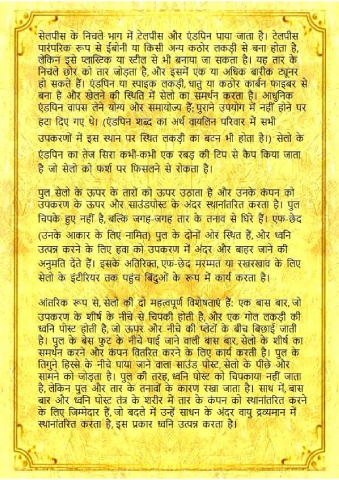 सेलपीस के निचले भाग में टेलपीस और एंडपिन पाया जाता है। टेलपीस
पारंपरिक रूप से ईबोनी या किसी अन्य कठोर लकड़ी से बना होता है,
लेकिन इसे प्लास्टिक या स्टील से भी बनाया जा सकता है। यह तार के
निचले छोर को तार जोड़ता है, और इसमें एक या अधिक बारीक ट्यूनर
हो सकते हैं। एंडपिन या स्पाइक लकड़ी, धातु या कठोर कार्बन फाइबर से
बना है और खेलने की स्थिति में सेलो का समर्थन करता है। आधुनिक
एंडपिन वापस लेने योग्य और समायोज्य हैं; पुराने उपयोग में नहीं होने पर
हटा दिए गए थे। (एंडपिन शब्द का अर्थ वायलिन परिवार में सभी
उपकरणों में इस स्थान पर स्थित लकड़ी का बटन भी होता है।) सेलो के
एंडपिन का तेज सिरा कभी-कभी एक रबड़ की टिप से कैप किया जाता
है जो सेलो को फर्श पर फिसलने से रोकता है।
पुल सेलो के ऊपर के तारों को ऊपर उठाता है और उनके कंपन को
उपकरण के ऊपर और साउंडपोस्ट के अंदर स्थानांतरित करता है। पुल
चिपके हुए नहीं है, बल्कि जगह-जगह तार के तनाव से घिरे हैं। एफ-छेद
(उनके आकार के लिए नामित) पुल के दोनों ओर स्थित हैं, और ध्वनि
उत्पन्न करने के लिए हवा को उपकरण में अंदर और बाहर जाने की
अनुमति देते हैं। इसके अतिरिक्त, एफ-छेद मरम्मत या रखरखाव के लिए
सेलो के इंटीरियर तक पहुंच बिंदुओं के रूप में कार्य करता है।
आंतरिक रूप से, सेलो की दो महत्वपूर्ण विशेषताएं हैं: एक बास बार, जो
उपकरण के शीर्ष के नीचे से चिपकी होती है, और एक गोल लकड़ी की
ध्वनि पोस्ट होती है, जो ऊपर और नीचे की प्लेटों के बीच बिछाई जाती
है। पुल के बेस फुट के नीचे पाई जाने वाली बास बार, सेलो के शीर्ष का
समर्थन करने और कंपन वितरित करने के लिए कार्य करती है। पुल के
तिगुने हिस्से के नीचे पाया जाने वाला साउंड पोस्ट, सेलो के पीछे और
सामने को जोड़ता है। पुल की तरह, ध्वनि पोस्ट को चिपकाया नहीं जाता
है, लेकिन पुल और तार के तनावों के कारण रखा जाता है। साथ में, बास
बार और ध्वनि पोस्ट तंत्र के शरीर में तार के कंपन को स्थानांतरित करने
के लिए जिम्मेदार हैं, जो बदले में उन्हें साधन के अंदर वायु द्रव्यमान में
स्थानांतरित करता है, इस प्रकार ध्वनि उत्पन्न करता है।